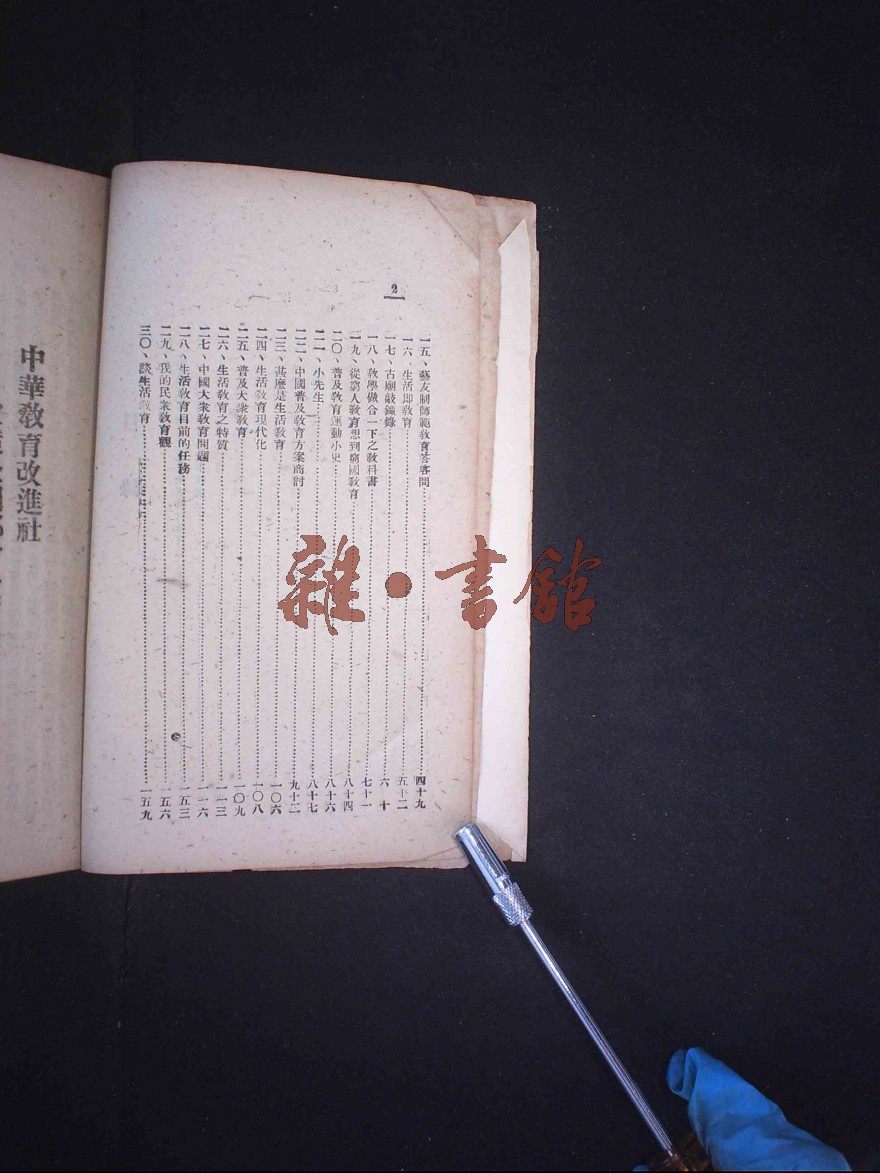 2
一五、藝友制師範教育答客問 四十九
一六、生活即教育 五十二
一七、古廟敲鐘錄 六十
一八、教學做合一下之教科書 七十一
一九、從窮人教育想到窮國教育 八十四
二〇、普及教育運動小史 八十六
二一、小先生 八十七
二二、中國普及教育方案商討 九十二
二三、甚麼是生活教育 一〇六
二四、生活教育現代化 一〇八
二五、普及大衆教育 一〇九
二六、生活教育之特質 一一三
二七、中國大衆教育問題 一一六
二八、生活教育目前的任務 一五三
二九、我的民衆教育觀 一五六
三〇、談生活教育 一五九
中華教育改進社
雜·書館